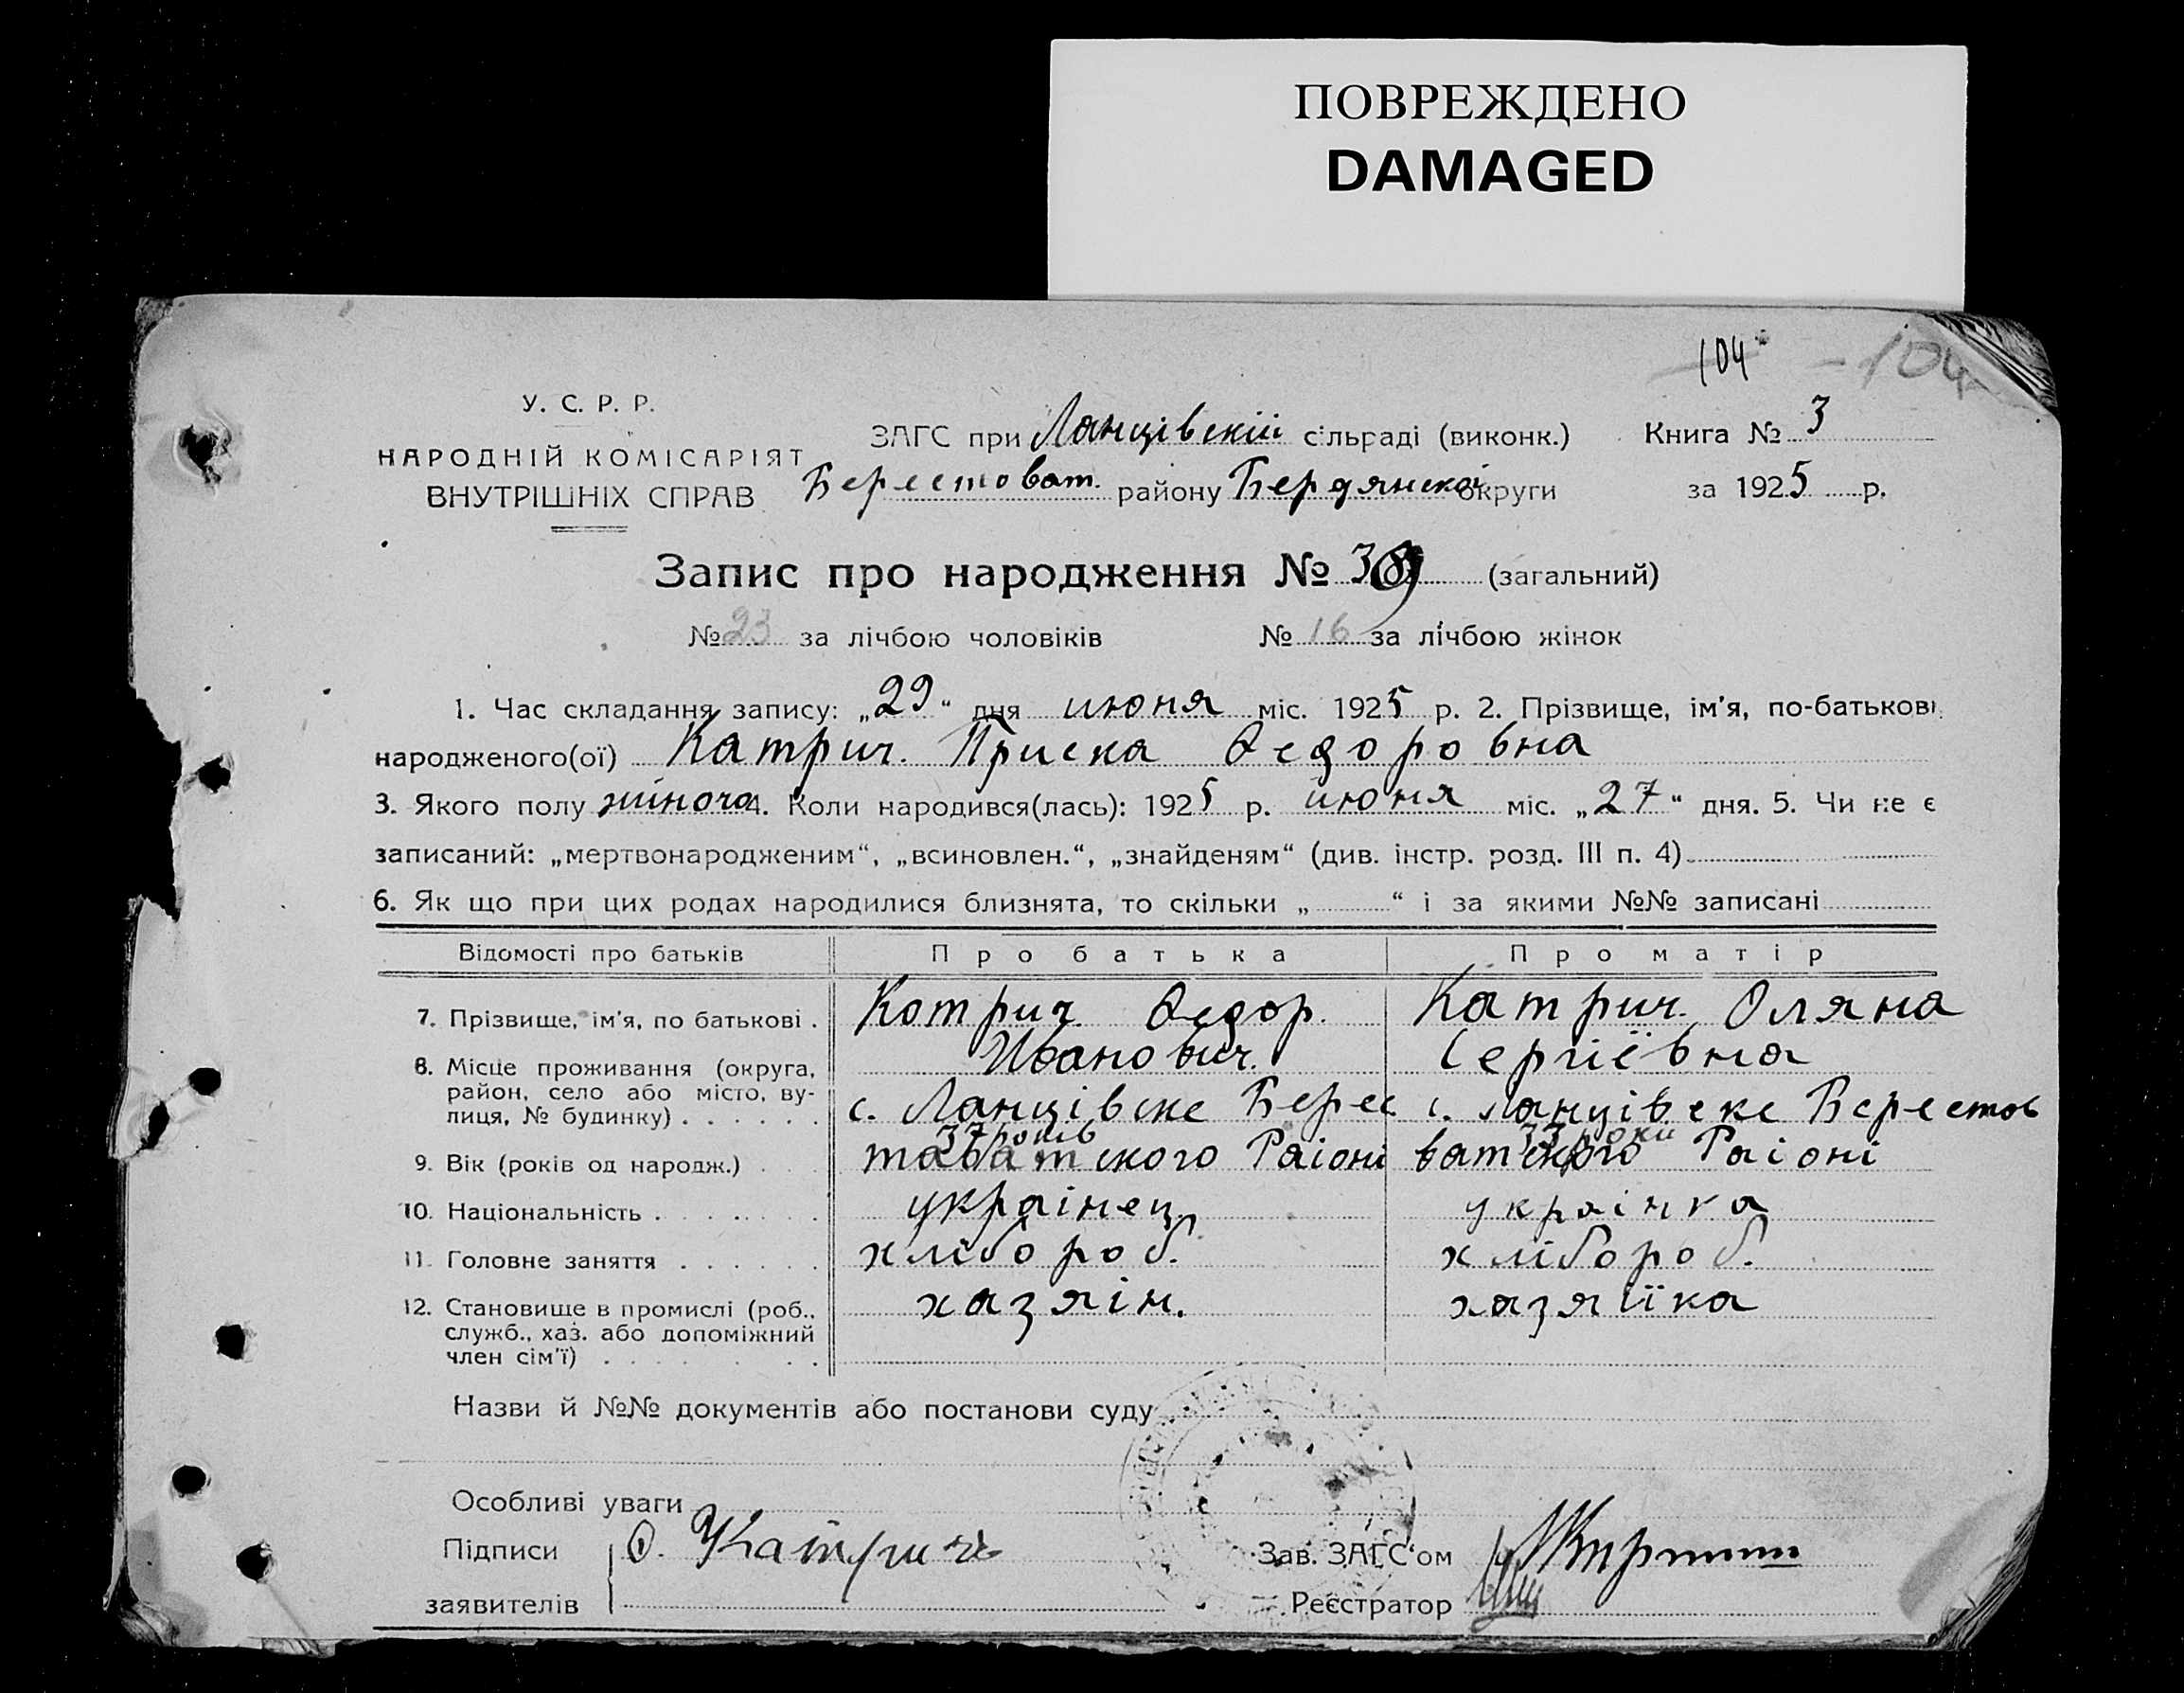 ПОВРЕЖДЕНО
DAMAGED
104
-104
У. С. Р. Р.
НАРОДНІЙ КОМІСАРІЯТ
ВНУТРІШНІХ СПРАВ
ЗАГС при Ланцівскій сільраді (виконк.)
Берестоват. району Бердянскоі округи
Книга № 3
за 1925 р.
Запис про народження № 39 (загальний)
№ 23 за лічбою чоловіків № 16 за лічбою жінок
1. Час складання запису: „29“ дня июня міс. 1925 р. 2. Прізвище, ім'я, по-батькові
народженого(ої) Катрич. Приска Ѳедоровна
3. Якого полу жіночо 4. Коли народився(лась): 1925 р. июня міс. „27“ дня. 5. Чи не є
записаний: „мертвонародженим“, „всиновлен.“, „знайденям“ (див. інстр. розд. III п. 4)
6. Як що при цих родах народилися близнята, то скільки „ “ і за якими №№ записані
Відомості про батьків Про батька Про матір
7. Прізвище, ім'я, по батькові . Котрич Ѳедор. Катрич. Оляна
Иванович. Сергіївна
8. Місце проживання (округа,
район, село або місто, ву-
лиця, № будинку) . . . . . . с. Ланцівске Берес с. Ланцівске Берестов
37 років 33 роки
9. Вік (років од народж.) . товатского Раіоні ватского Раіоні
10. Національність . . . . . . украінец украінка
11. Головне заняття . . . . . . хлібороб. хлібороб.
12. Становище в промислі (роб.,
служб., хаз. або допоміжний
член сім'ї) . . . . . . хазяін. хазяйка
Назви й №№ документів або постанови суду
Особливі уваги
Підписи О. Катричь Зав. ЗАГС'ом
заявителів Реєстратор